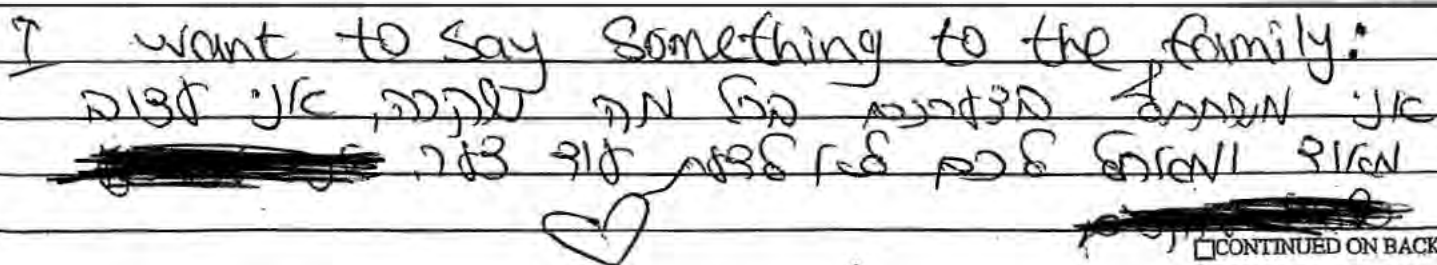 I want to say something to the family:
אני משתתף בצערכם בכל מה שקרה, אני עצוב
מאוד ומאחל לכם לא לדעת עוד צער.
CONTINUED ON BACK